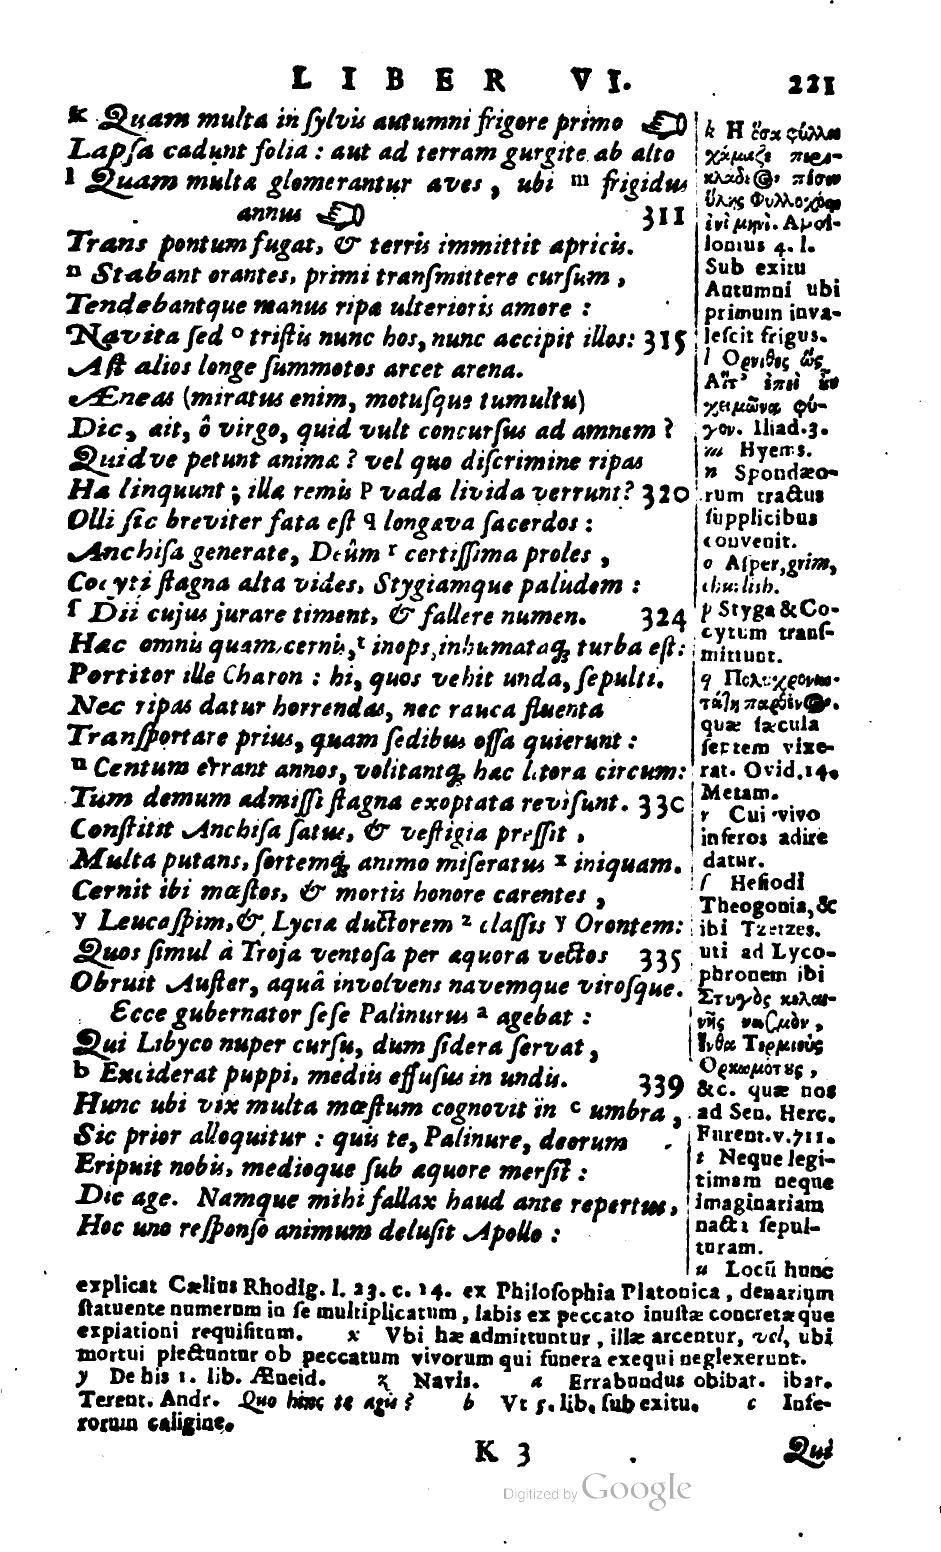 LIBER VI. 221
k Quam multa in ſylvis autumni frigore primo
Lapſa cadunt folia : aut ad terram gurgite ab alto
l Quam multa glomerantur aves, ubi m frigidus
annus 311
Trans pontum fugat, & terris immittit apricis.
n Stabant orantes, primi tranſmittere curſum,
Tendebantque manus ripæ ulterioris amore :
Navita ſed o triſtis nunc hos, nunc accipit illos: 315
Aſt alios longe ſummotos arcet arena.
Æneas (miratus enim, motuſque tumultu)
Dic, ait, ô virgo, quid vult concurſus ad amnem ?
Quidve petunt animæ ? vel quo diſcrimine ripas
Hæ linquunt ; illæ remis p vada livida verrunt? 320
Olli ſic breviter fata eſt q longæva ſacerdos :
Anchiſa generate, Deûm r certiſſima proles,
Cocyti ſtagna alta vides, Stygiamque paludem :
ſ Dii cujus jurare timent, & fallere numen. 324
Hæc omnis quam cernis, t inops, inhumataq; turba eſt:
Portitor ille Charon : hi, quos vehit unda, ſepulti.
Nec ripas datur horrendas, nec rauca fluenta
Tranſportare prius, quam ſedibus oſſa quierunt :
u Centum errant annos, volitantq; hæc litora circum:
Tum demum admiſſi ſtagna exoptata reviſunt. 330
Conſtitit Anchiſa ſatus, & veſtigia preſſit,
Multa putans, ſortemq; animo miſeratus x iniquam.
Cernit ibi mœſtos, & mortis honore carentes,
y Leucaſpim, & Lyciæ ductorem z claſſis y Orontem:
Quos ſimul à Troja ventoſa per æquora vectos 335
Obruit Auſter, aquâ involvens navemque viroſque.
Ecce gubernator ſeſe Palinurus a agebat :
Qui Libyco nuper curſu, dum ſidera ſervat,
b Exciderat puppi, mediis effuſus in undis. 339
Hunc ubi vix multa mœſtum cognovit in c umbra,
Sic prior alloquitur : quis te, Palinure, deorum
Eripuit nobis, medioque ſub æquore merſit :
Dic age. Namque mihi fallax haud ante repertus,
Hoc uno reſponſo animum deluſit Apollo :
k Η ὅσα φύλλα
χάμαζε περι-
κλαδέ@ πέσεν
ὕλης Φυλλοχόῳ
ἐνὶ μηνί. Apol-
lonius 4. l.
Sub exitu
Autumni ubi
primum inva-
leſcit frigus.
l Ορνιθες ὥς
Αἵτ' ἐπεὶ ἓν
χειμῶνα φύ-
γον. Iliad. 3.
m Hyems.
n Spondæo-
rum tractus
ſupplicibus
convenit.
o Aſper, grim,
p Styga & Co-
cytum tranſ-
mittunt.
q Πολυχρονιω-
τάτη παρθέν@.
quæ ſæcula
ſeptem vixe-
rat. Ovid. 14.
Metam.
r Cui vivo
inferos adire
datur.
ſ Heſiodi
Theogonia, &
ibi Tzetzes.
uti ad Lyco-
phronem ibi
Στυγὸς κελαι-
νῆς νασμὸν,
Ἵνθα Τερμιεὺς
Ορκωμότους,
&c. quæ nos
ad Sen. Herc.
Furent. v. 711.
t Neque legi-
timam neque
imaginariam
nacti ſepul-
turam.
u Locū hunc
explicat Cælius Rhodig. l. 23. c. 14. ex Philoſophia Platonica, denarium
ſtatuente numerum in ſe multiplicatum, labis ex peccato inuſtæ concretæque
expiationi requiſitum. x Vbi hæ admittuntur, illæ arcentur, vel, ubi
mortui plectuntur ob peccatum vivorum qui funera exequi neglexerunt.
y De his 1. lib. Æneid. z Navis. a Errabundus obibat. ibat.
Terent. Andr. Quo hinc te agis ? b Vt 5. lib. ſub exitu. c Infe-
rorum caligine.
K 3 Qui
Digitized by Google